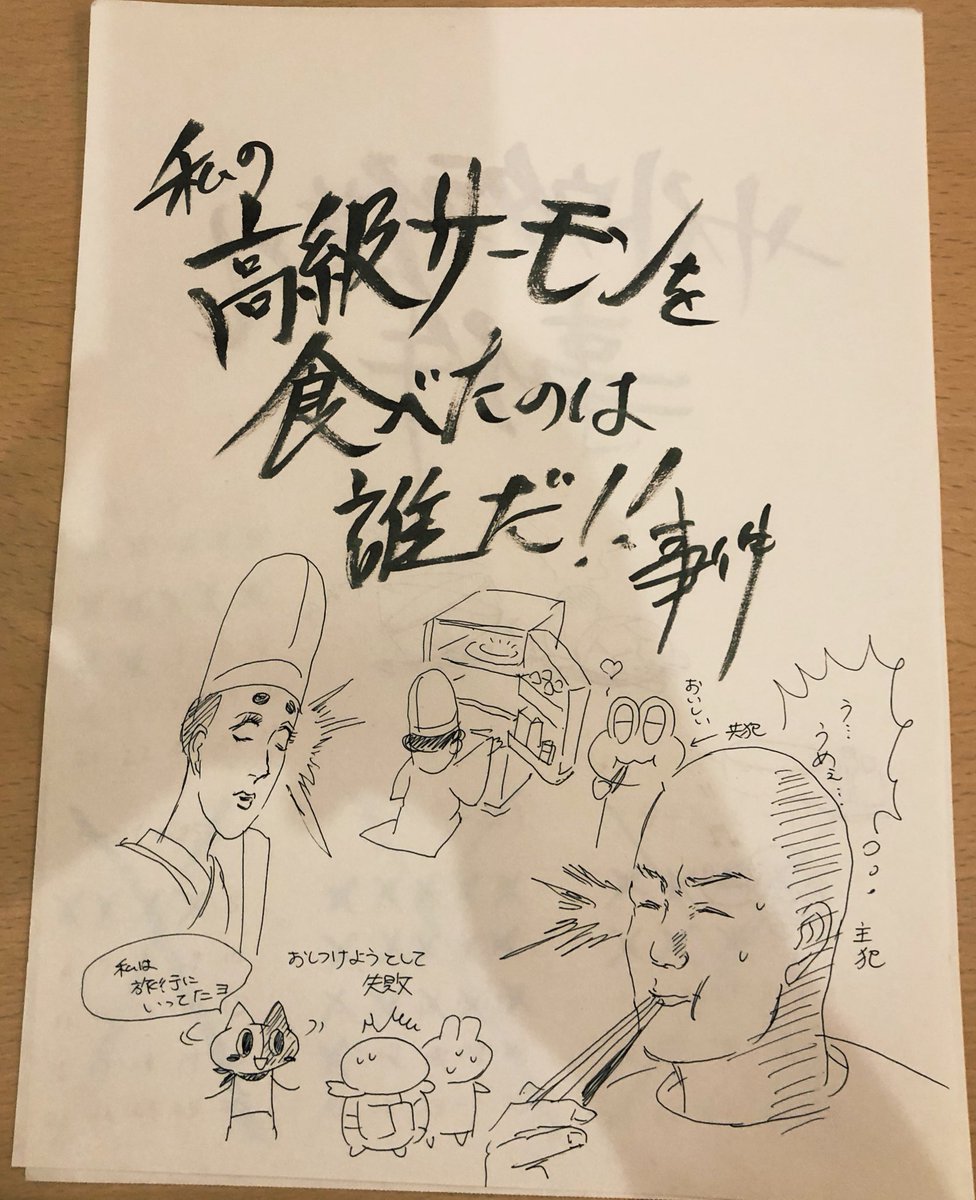 私の
高級サーモンを
食べたのは
誰だ!!事件
おいしい
共犯
う…
うめぇ…
主犯
私は
旅行に
いってたヨ
おしつけようとして
失敗